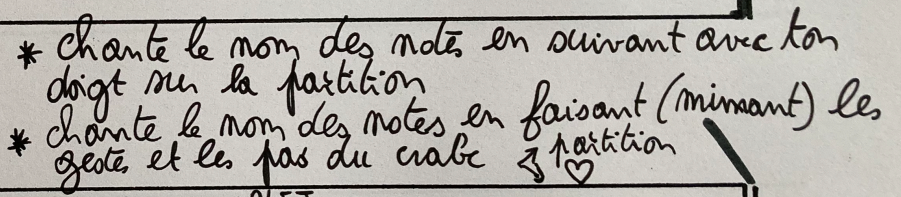 * chante le nom des notes en suivant avec ton
doigt sur la partition
* chante le nom des notes en faisant (mimant) les
gestes et les pas du crabe partition